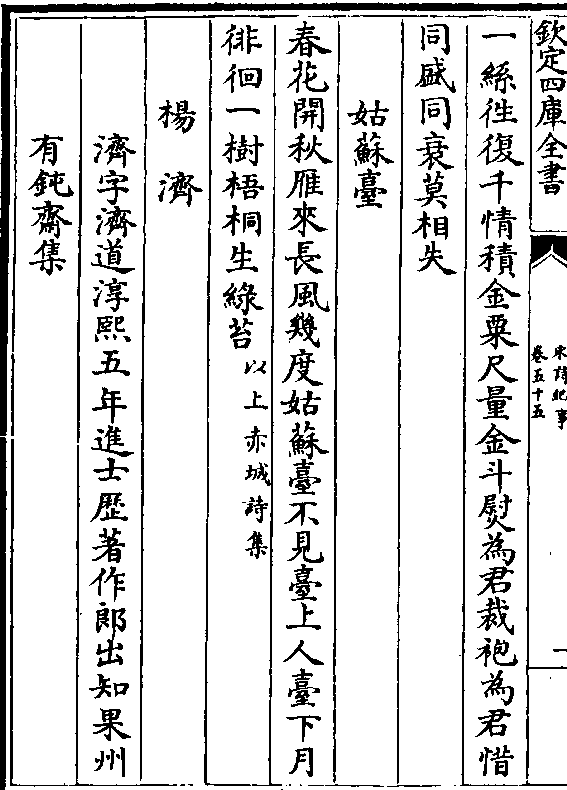 欽定四庫全書
宋詩紀事
卷五十五
一絲往復千情積金粟尺量金斗熨為君裁袍為君惜
同盛同衰莫相失
姑蘇臺
春花開秋雁來長風幾度姑蘇臺不見臺上人臺下月
徘徊一樹梧桐生綠苔以上赤城詩集
楊濟
濟字濟道淳熙五年進士歷著作郎出知果州
有鈍齋集